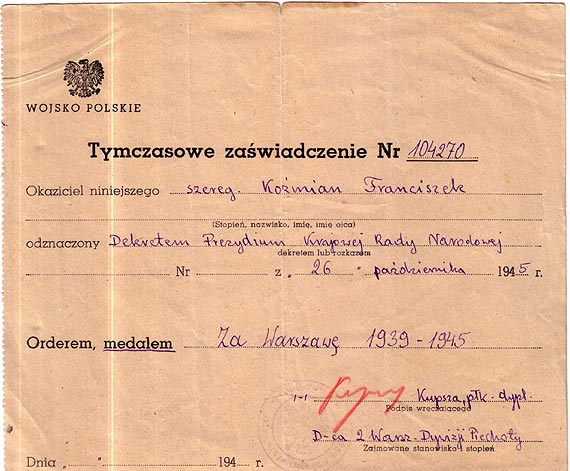 WOJSKO POLSKIE
Tymczasowe zaświadczenie Nr 104270
Okaziciel niniejszego szereg. Koźmian Franciszek
(Stopień, nazwisko, imię, imię ojca)
odznaczony Dekretem Prezydium Krajowej Rady Narodowej
dekretem lub rozkazem
Nr z „ 26 " października 1945 r.
Orderem, medalem Za Warszawę 1939-1945
Kupsza, płk. dypl.
Podpis wręczającego
D-ca 2 Warsz. Dywizji Piechoty
Zajmowane stanowisko i stopień
Dnia „ " 194 r.